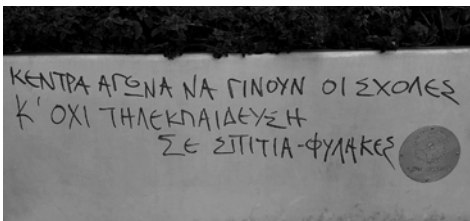 ΚΕΝΤΡΑ ΑΓΩΝΑ ΝΑ ΓΙΝΟΥΝ ΟΙ ΣΧΟΛΕΣ
Κ' ΟΧΙ ΤΗΛΕΚΠΑΙΔΕΥΣΗ
ΣΕ ΣΠΙΤΙΑ-ΦΥΛΑΚΕΣ